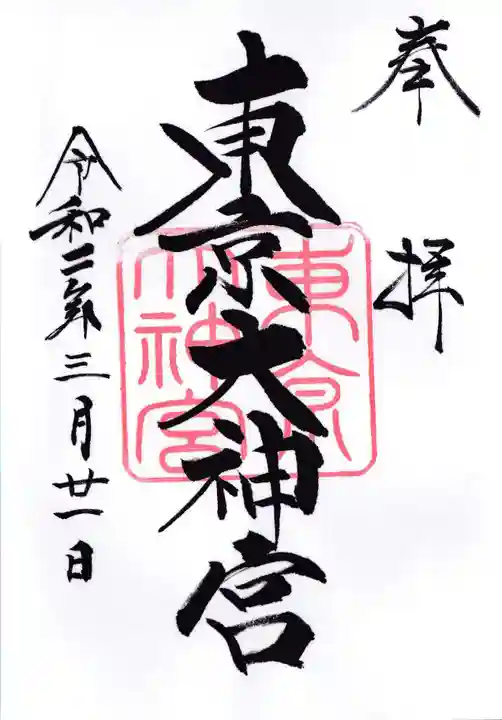 奉拝
東京大神宮
東京大神宮
令和二年三月廿一日